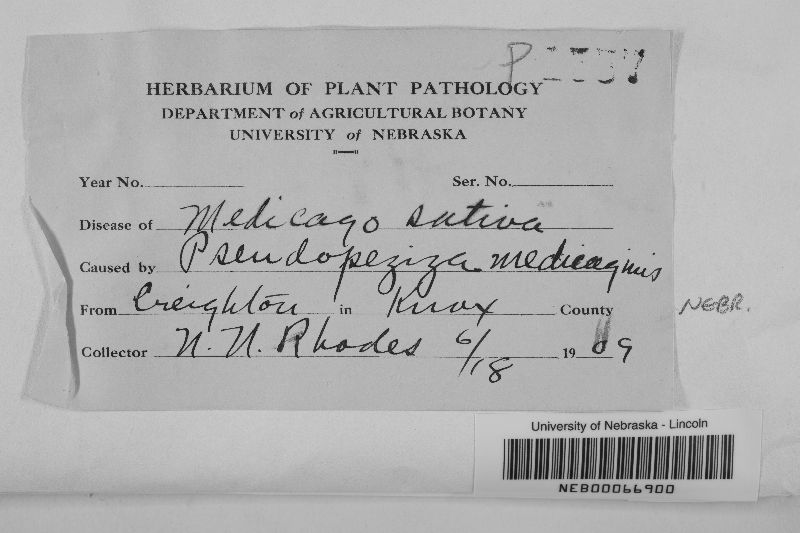 P
HERBARIUM OF PLANT PATHOLOGY
DEPARTMENT of AGRICULTURAL BOTANY
UNIVERSITY of NEBRASKA
Year No. Ser. No.
Disease of Medicago sativa
Caused by Pseudopeziza medicaginis
From Creighton in Knox County NEBR.
Collector N. N. Rhodes 6/18 1909
University of Nebraska - Lincoln
NEB00066900